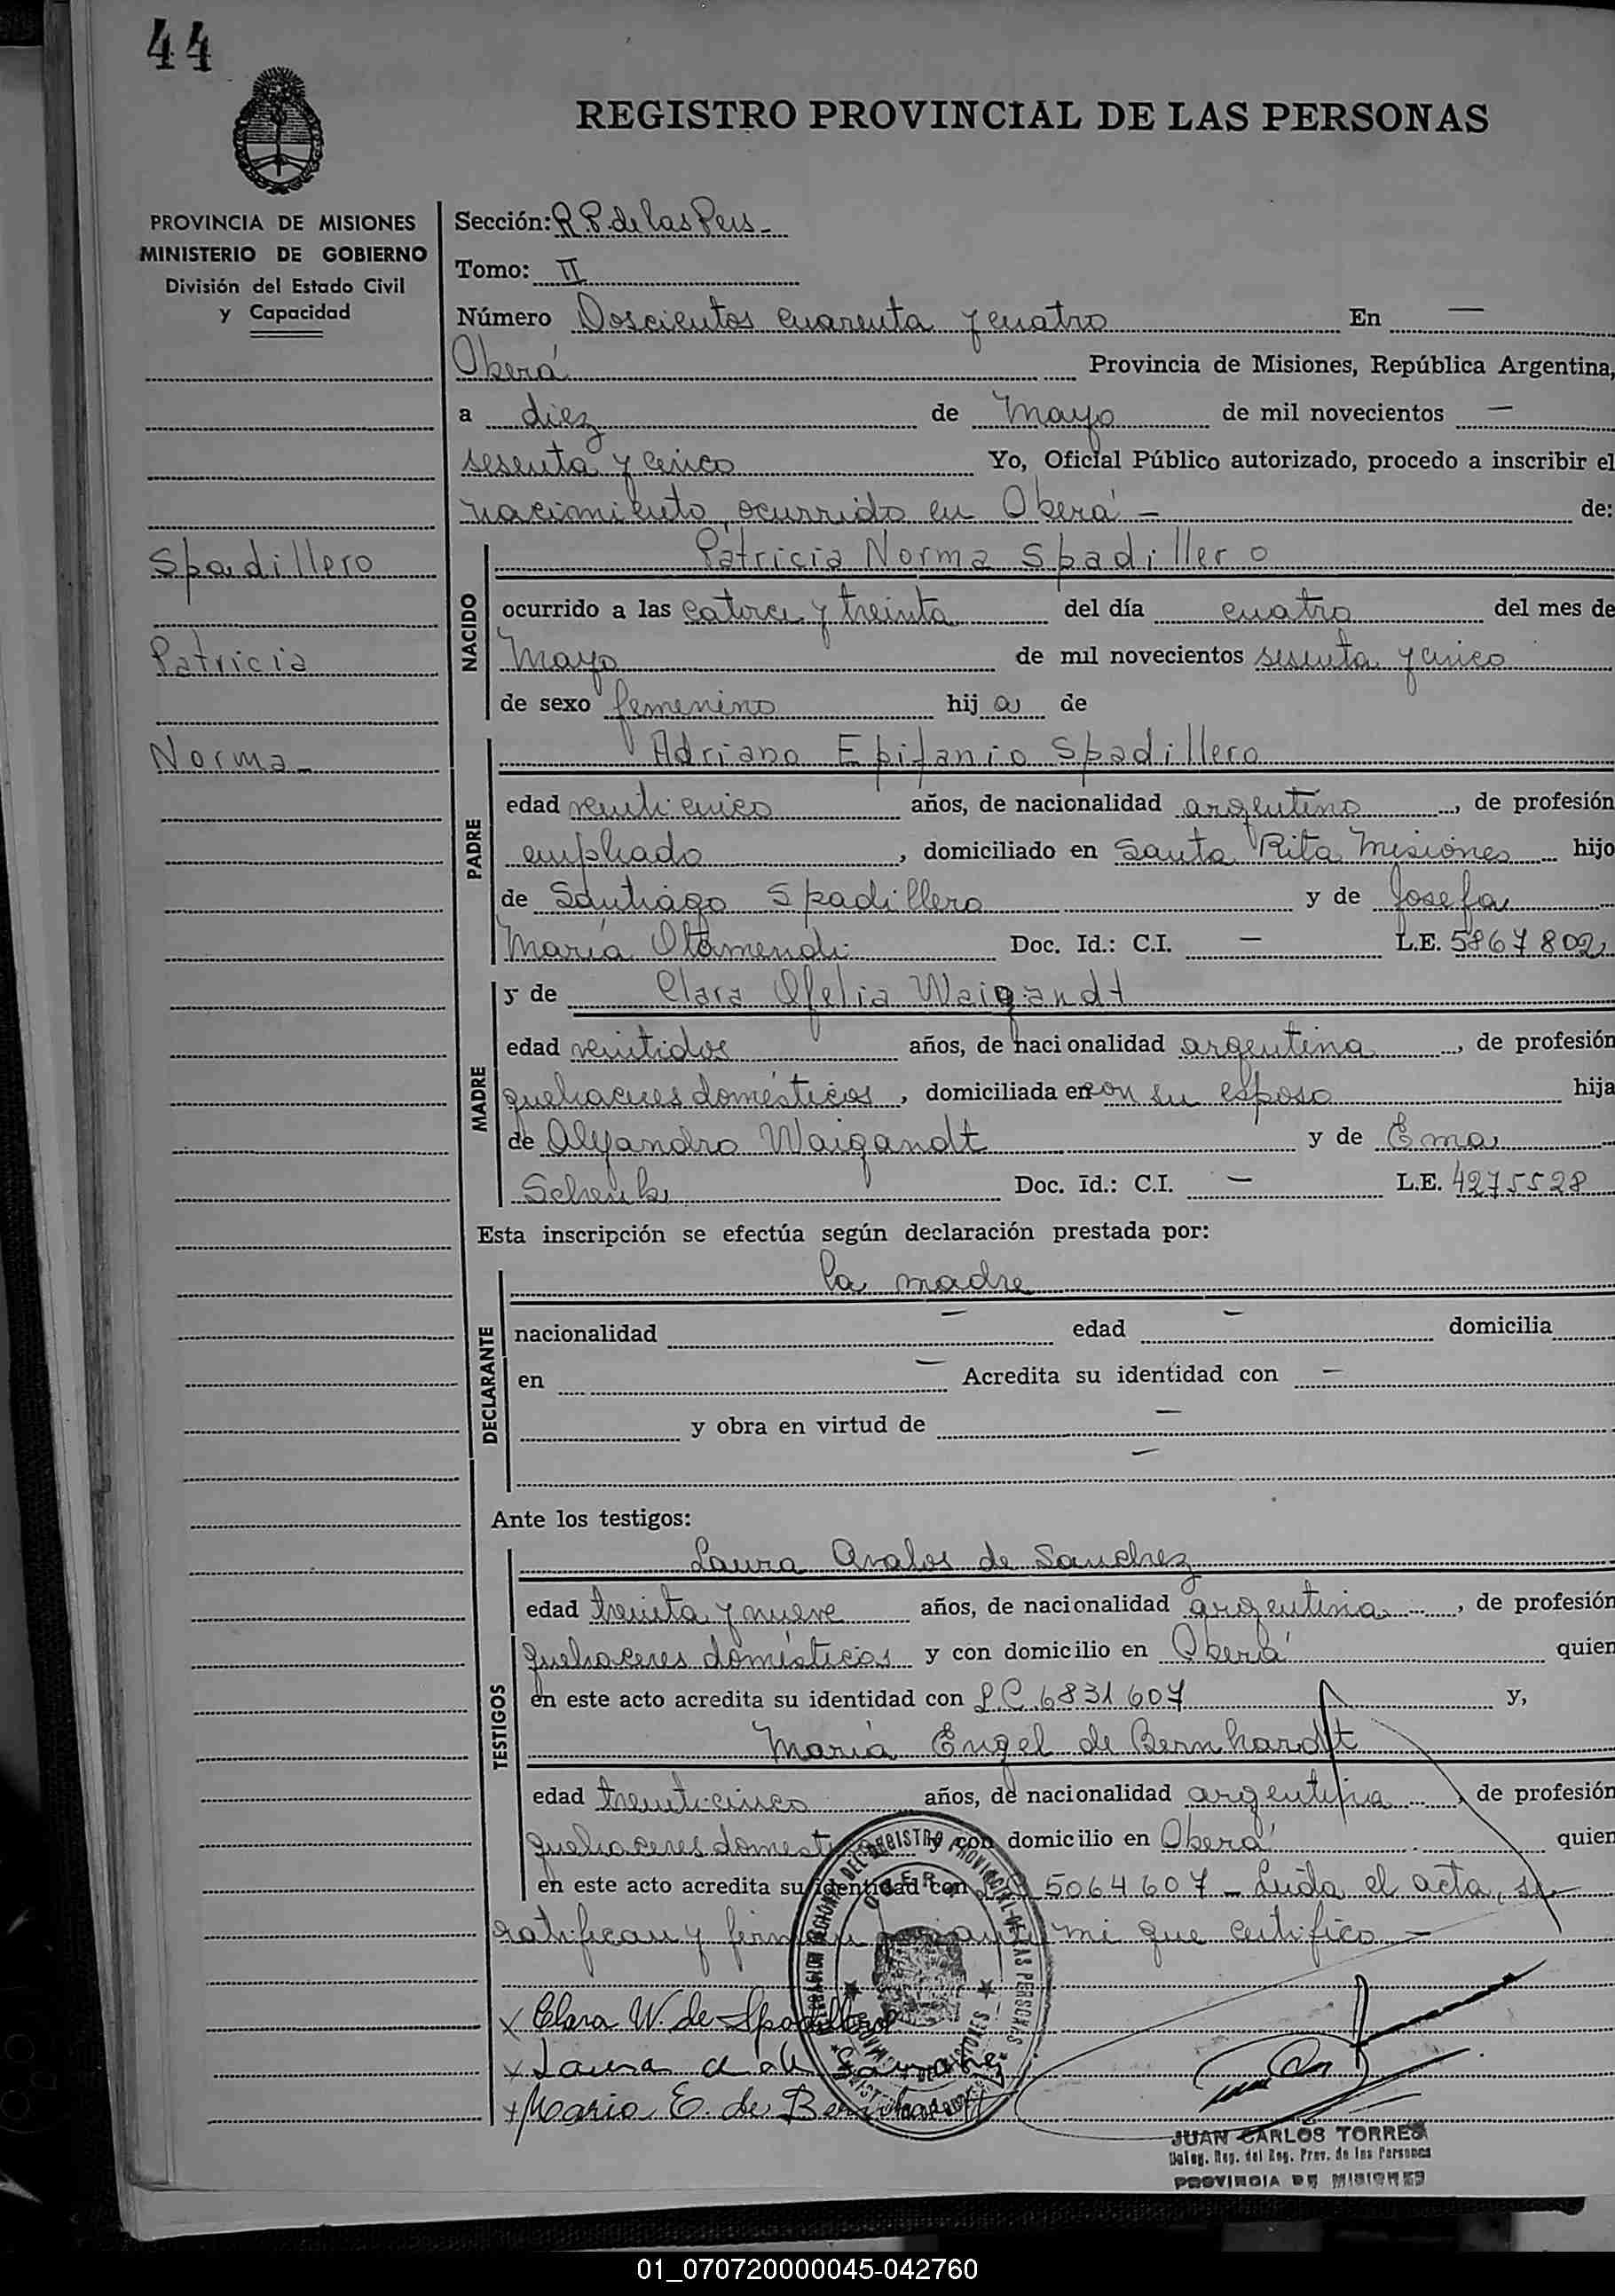 44
REGISTRO PROVINCIAL DE LAS PERSONAS
PROVINCIA DE MISIONES
MINISTERIO DE GOBIERNO
División del Estado Civil
y Capacidad
Spadillero
Patricia
Norma -
Sección: R.P. de las Pers -
Tomo: II
Número Doscientos cuarenta y cuatro En —
Oberá Provincia de Misiones, República Argentina,
a diez de Mayo de mil novecientos —
sesenta y cinco Yo, Oficial Público autorizado, procedo a inscribir el
nacimiento ocurrido en Oberá - de:
NACIDO
Patricia Norma Spadillero
ocurrido a las catorce y treinta del día cuatro del mes de
Mayo de mil novecientos sesenta y cinco
de sexo femenino hij a de
PADRE
Adriano Epifanio Spadillero
edad venticinco años, de nacionalidad argentino, de profesión
empleado, domiciliado en Santa Rita Misiones hijo
de Santiago Spadillero y de Josefa
María Olamendi Doc. Id.: C.I. — L.E. 5867802
MADRE
y de Clara Ofelia Waigandt
edad ventidos años, de nacionalidad argentina, de profesión
quehaceres domésticos, domiciliada en con su esposo hija
de Alejandro Waigandt y de Ema
Schenk Doc. Id.: C.I. — L.E. 4275528
Esta inscripción se efectúa según declaración prestada por:
DECLARANTE
la madre
nacionalidad — edad — domicilia
en — Acredita su identidad con —
y obra en virtud de —
—
Ante los testigos:
TESTIGOS
Laura Avalos de Sanchez
edad treinta y nueve años, de nacionalidad argentina, de profesión
quehaceres domésticos y con domicilio en Oberá quien
en este acto acredita su identidad con L.C. 6831607 y,
María Engel de Bernhardt
edad trenticinco años, de nacionalidad argentina, de profesión
quehaceres domesticos y con domicilio en Oberá quien
en este acto acredita su identidad con L.C. 5064607 - Leída el acta, se
ratifican y firman por ante mi que certifico -
x Clara W. de Spadillero
x Laura A de Sanchez
x Maria E. de Bernhardt
JUAN CARLOS TORRES
Deleg. Reg. del Reg. Prov. de las Personas
PROVINCIA DE MISIONES
01_070720000045-042760